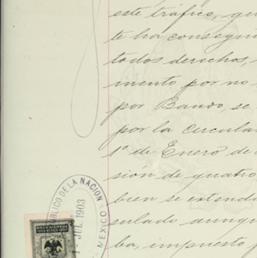 este tráfico, que
te ha consegui
todos derechos,
mento por no
por Bando, se
por la Circula
1º de Enero de
sion de quatro
bien se entend
sulado aunqu
ba, impuesto p
PUBLICO DE LA NACION
MEXICO
JUL. 1903